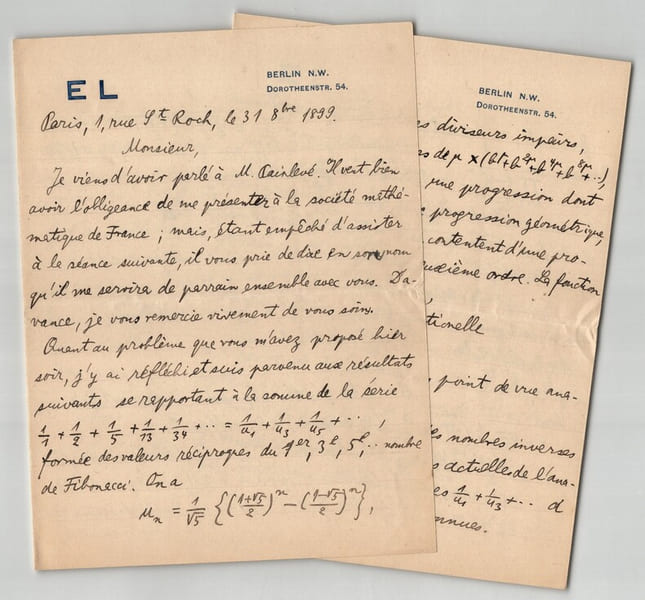 EL
BERLIN N.W.
DOROTHEENSTR. 54.
Paris, 1, rue St Roch, le 31 8bre 1899.
Monsieur,
Je viens d'avoir parlé à M. Painlevé. Il veut bien
avoir l'obligeance de me présenter à la société mathé-
matique de France ; mais, étant empêché d'assister
à la séance suivante, il vous prie de dire en son nom
qu'il me servira de parrain ensemble avec vous. D'a-
vance, je vous remercie vivement de vous soin.
Quant au problème que vous m'avez proposé hier
soir, j'y ai réfléchi et suis parvenu aux résultats
suivants se rapportant à la somme de la série
1/1 + 1/2 + 1/5 + 1/13 + 1/34 + ·· = 1/u1 + 1/u3 + 1/u5 + ··,
formée des valeurs réciproques du 1er, 3e, 5e, ·· nombre
de Fibonacci. On a
un = 1/√5 {((1+√5)/2)^n − ((1−√5)/2)^n},
BERLIN N.W.
DOROTHEENSTR. 54.
diviseurs impairs,
de μ × (bμ + b2μ + b4μ + b8μ + ··),
une progression dont
progression géométrique,
contentent d'une pro-
uxième ordre. La fonction
tionelle
point de vue ana-
nombres inverses
actuelles de l'ana-
1/u1 + 1/u3 + ·· d
nnues.